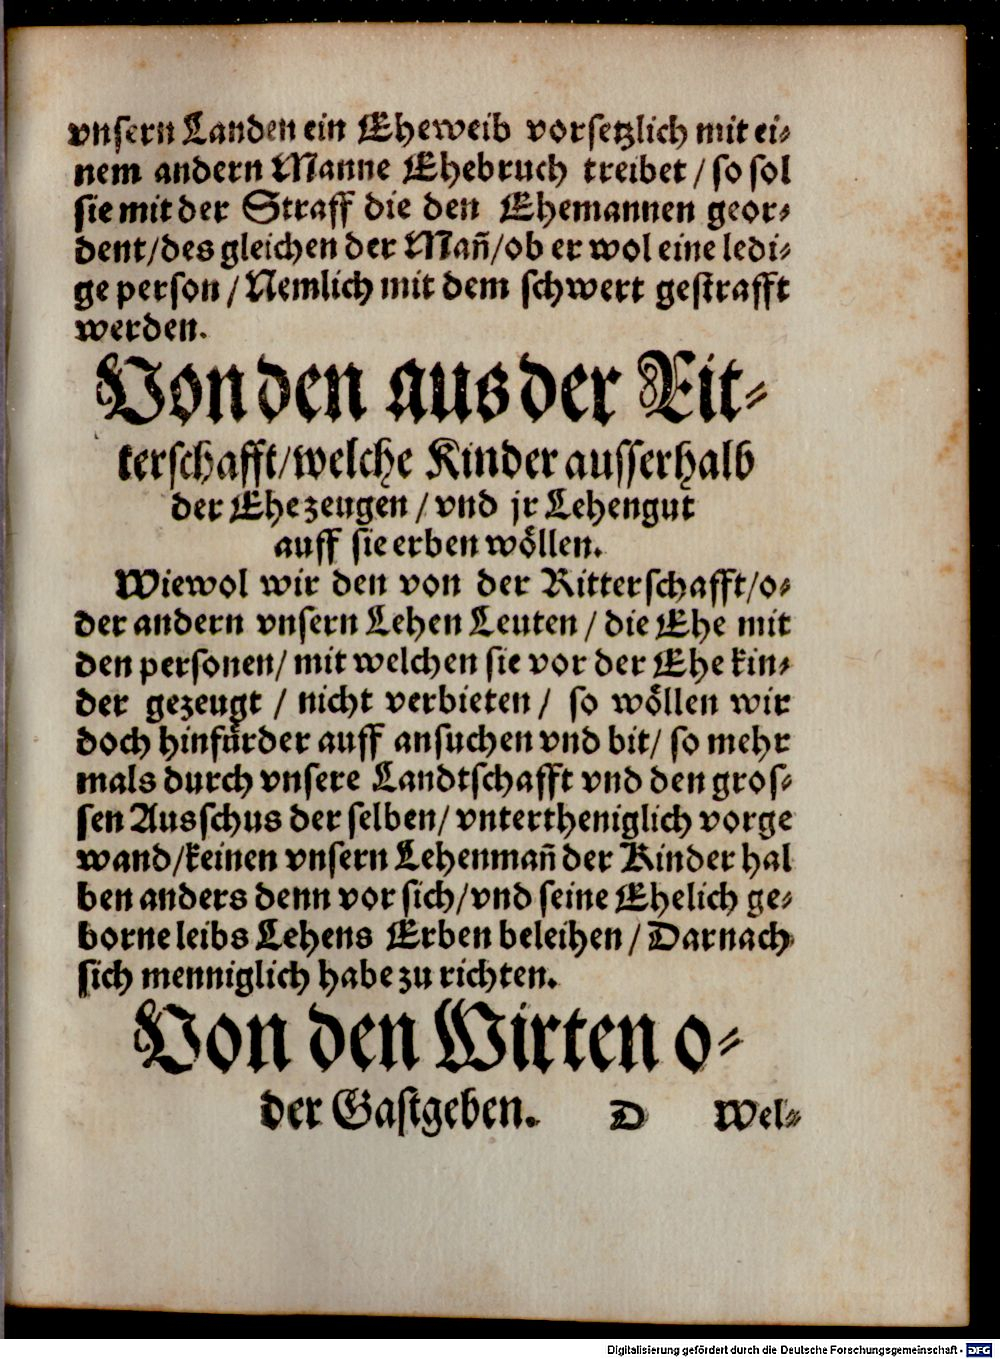 vnsern Landen ein Eheweib vorsetzlich mit ei⸗
nem andern Manne Ehebruch treibet / so sol
sie mit der Straff die den Ehemannen geor⸗
dent/des gleichen der Mañ/ob er wol eine ledi⸗
ge person / Nemlich mit dem schwert gestrafft
werden.
Von den aus der Rit⸗
terschafft/welche Kinder ausserhalb
der Ehe zeugen / vnd jr Lehengut
auff sie erben wöllen.
Wiewol wir den von der Ritterschafft/o⸗
der andern vnsern Lehen Leuten / die Ehe mit
den personen/ mit welchen sie vor der Ehe kin⸗
der gezeugt / nicht verbieten / so wöllen wir
doch hinfürder auff ansuchen vnd bit/ so mehr
mals durch vnsere Landtschafft vnd den gros⸗
sen Ausschus der selben/ vntertheniglich vorge
wand/keinen vnsern Lehenmañ der Kinder hal
ben anders denn vor sich/vnd seine Ehelich ge⸗
borne leibs Lehens Erben beleihen / Darnach
sich menniglich habe zu richten.
Von den Wirten o⸗
der Gastgeben. D Wel⸗
Digitalisierung gefördert durch die Deutsche Forschungsgemeinschaft - DFG